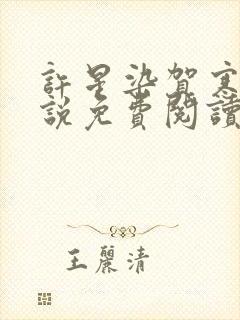 許星染賀寒
説免費閱讀
王麗清